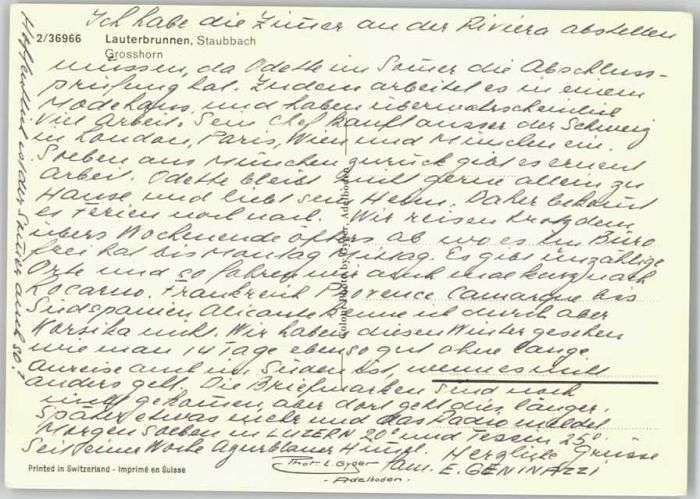 Ich habe die Zimer an der Riviera abstellen
2/36966 Lauterbrunnen, Staubbach
Grosshorn
müssen, da Odette im Somer die Abschluss-
prüfung hat. Zudem arbeitet es in einem
Modehaus und haben überwahrscheinlich
viel Arbeit. Sein Chef kauft ausser der Schweiz
in London, Paris, Wien und München ein.
Soeben aus München zurück gibt es erneut
Arbeit. Odette bleibt nicht gerne allein zu
Hause und liebt sein Heim. Daher bekommt
es Ferien noch nach. Wir reisen trotzdem
übers Wochenende öfters ab wo es im Büro
frei hat bis Montag Mittag. Es gibt unzählige
Orte und so fahren wir auch mal kurz nach
Locarno. Frankreich Provence Camargue bis
Südspanien Alicante kenne ich durch aber
Korsika nicht. Wir haben diesen Winter gesehen
wie man 14 Tage ebenso gut ohne lange
Anreise auch im Süden ist, wenn es nicht
anders geht. Die Briefmarken sind noch
nicht gekommen, aber dort geht dies länger.
Später etwas mehr und das Radio meldet
Morgen soeben in LUZERN 20° und Tessin 25°.
Seit einer Woche Azurblauer Himel. Herzliche Grüsse
Fam. E. GENINAZZI
Hoffentlich ist der Somer auch so?
Colorphoto by Gyger, Adelboden
Printed in Switzerland - Imprimé en Suisse
Phot. E. Gyger
Adelboden